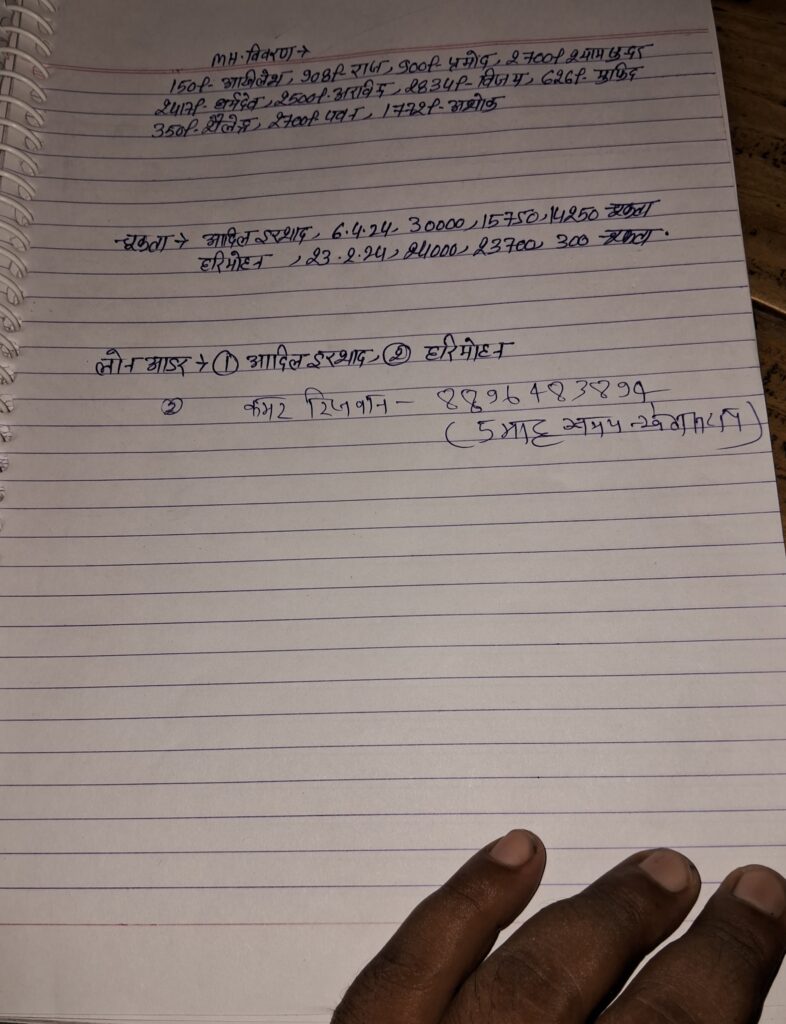 MH. विवरण →
150/- अखिलेश, 908/- राज, 900/- प्रमोद, 2700/- श्याम सुन्दर
2417/- धर्मदेव, 2500/- अरविंद, 2834/- विजय, 626/- मुफिद
350/- शैलेन्द्र, 2700/- पवन, 1772/- अशोक
चुकता → आदिल इरशाद, 6.4.24, 30000, 15750, 14250 चुकता
हरिमोहन, 23.2.24, 24000, 23700, 300 चुकता.
लोन आडर → ① आदिल इरशाद, ② हरिमोहन
② कमर रिजवान - 8896483894
(5 माह समय